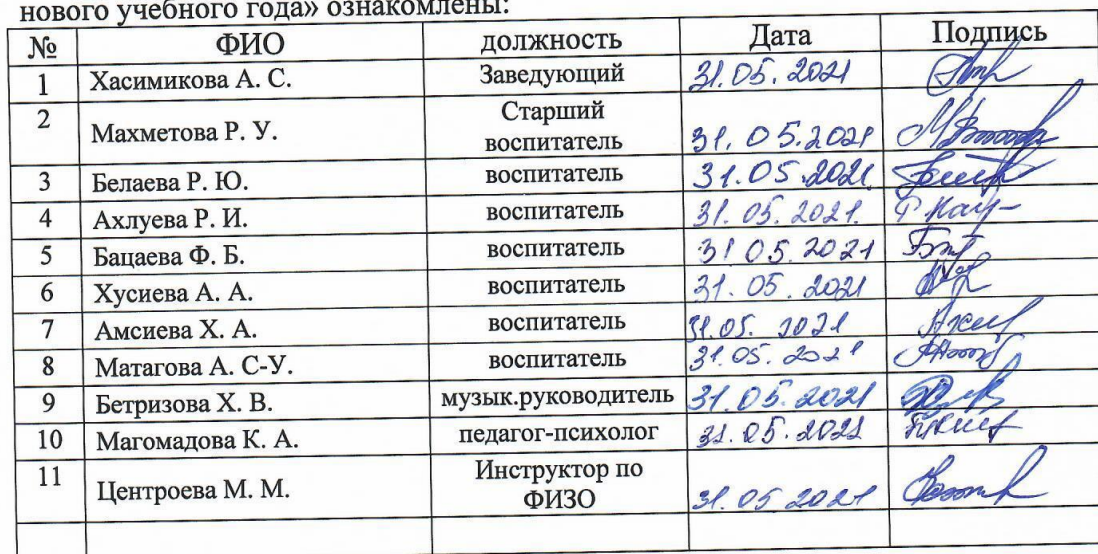 нового учебного года» ознакомлены:
№ ФИО должность Дата Подпись
1 Хасимикова А. С. Заведующий 31.05.2021
2 Махметова Р. У. Старший воспитатель 31.05.2021
3 Белаева Р. Ю. воспитатель 31.05.2021
4 Ахлуева Р. И. воспитатель 31.05.2021.
5 Бацаева Ф. Б. воспитатель 31 05.2021
6 Хусиева А. А. воспитатель 31.05.2021
7 Амсиева Х. А. воспитатель 31.05.2021
8 Матагова А. С-У. воспитатель 31.05.2021
9 Бетризова Х. В. музык.руководитель 31.05.2021
10 Магомадова К. А. педагог-психолог 31.05.2021
11 Центроева М. М. Инструктор по ФИЗО 31.05 2021